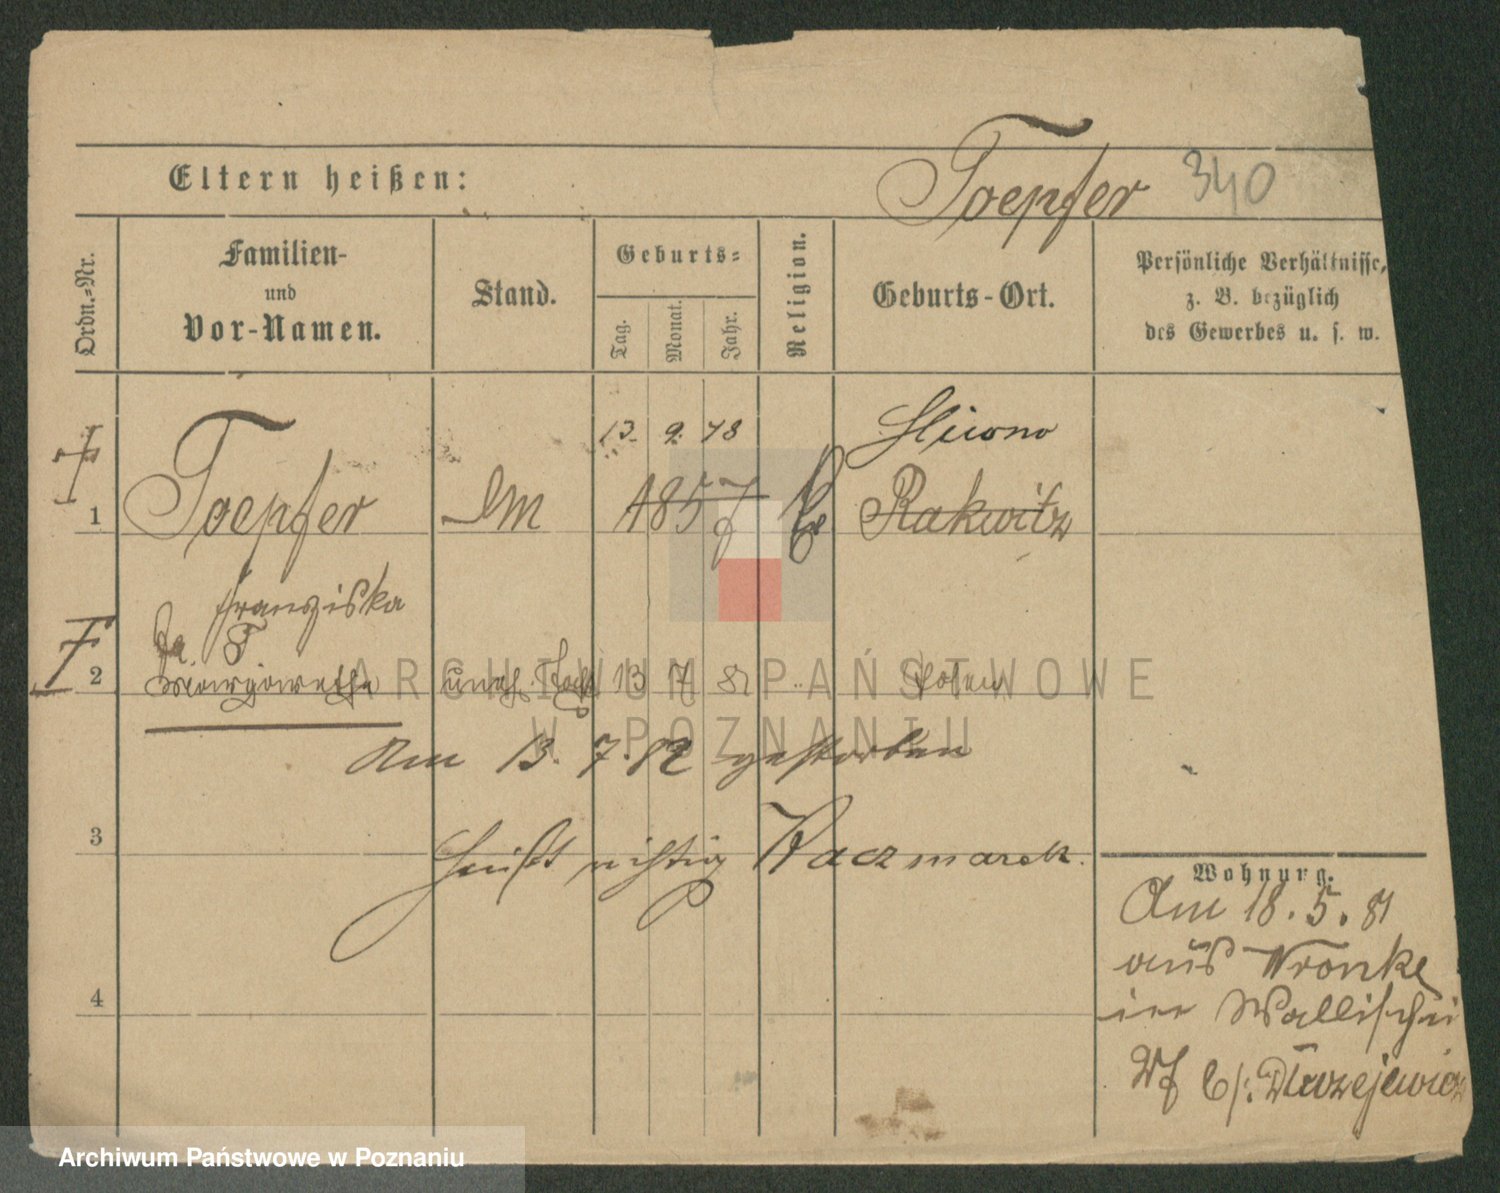 Toepfer 340
Eltern heißen:
Ordn.-Nr.
Familien-
und
Vor-Namen.
Stand.
Geburts-
Tag.
Monat.
Jahr.
Religion.
Geburts-Ort.
Persönliche Verhältnisse,
z. B. bezüglich
des Gewerbes u. s. w.
13. 9.
1 Toepfer 1857 Rakwitz
Franziska
2 Margarethe uneh. 13 7 81 Posen
Am 13. 7. 82 gestorben
3
heißt richtig Kaczmarek.
4
Wohnung.
Am 18. 5. 81
aus Wronke
in Wallischei
ARCHIWUM PAŃSTWOWE
W POZNANIU
Archiwum Państwowe w Poznaniu